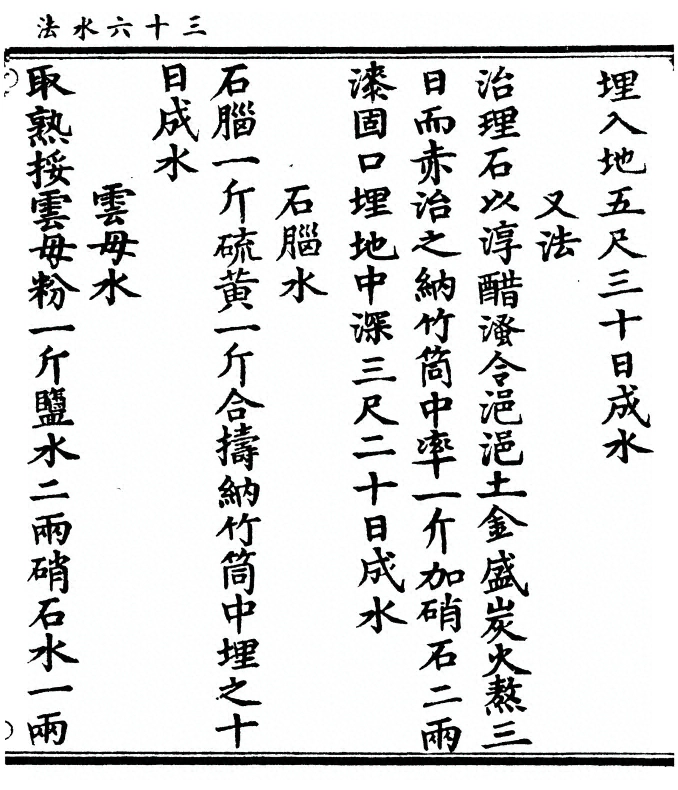 三十六水法
埋入地五尺三十日成水
又法
治理石以淳醋溲令浥浥土金盛炭火熬三
日而赤治之納竹筒中率一斤加硝石二兩
漆固口埋地中深三尺二十日成水
石腦水
石腦一斤硫黃一斤合擣納竹筒中埋之十
日成水
雲母水
取熟挼雲母粉一斤鹽水二兩硝石水一兩